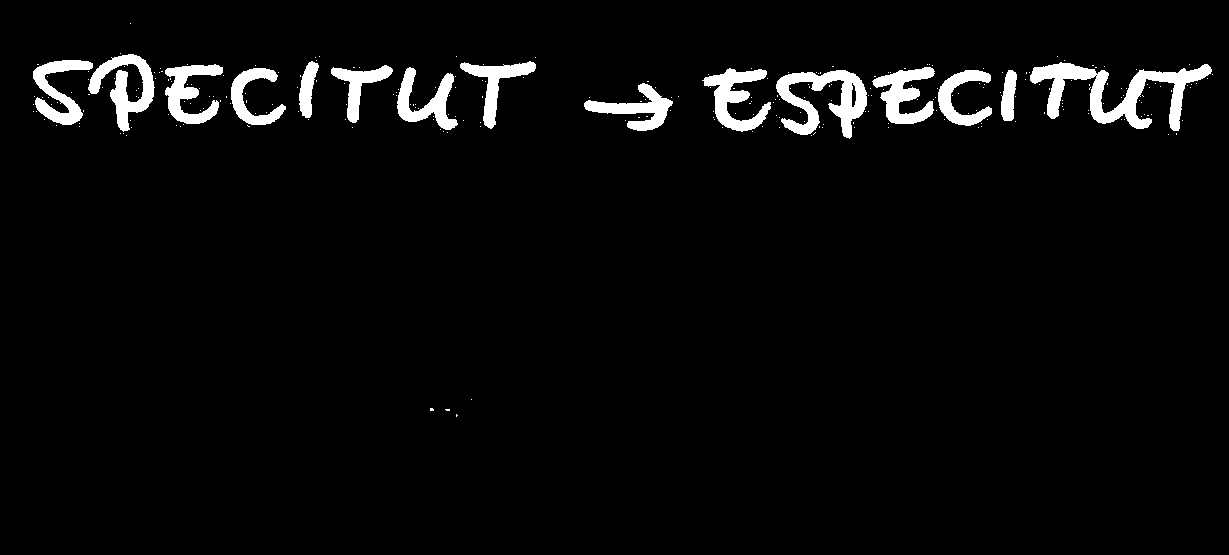 SPECITUT → ESPECITUT